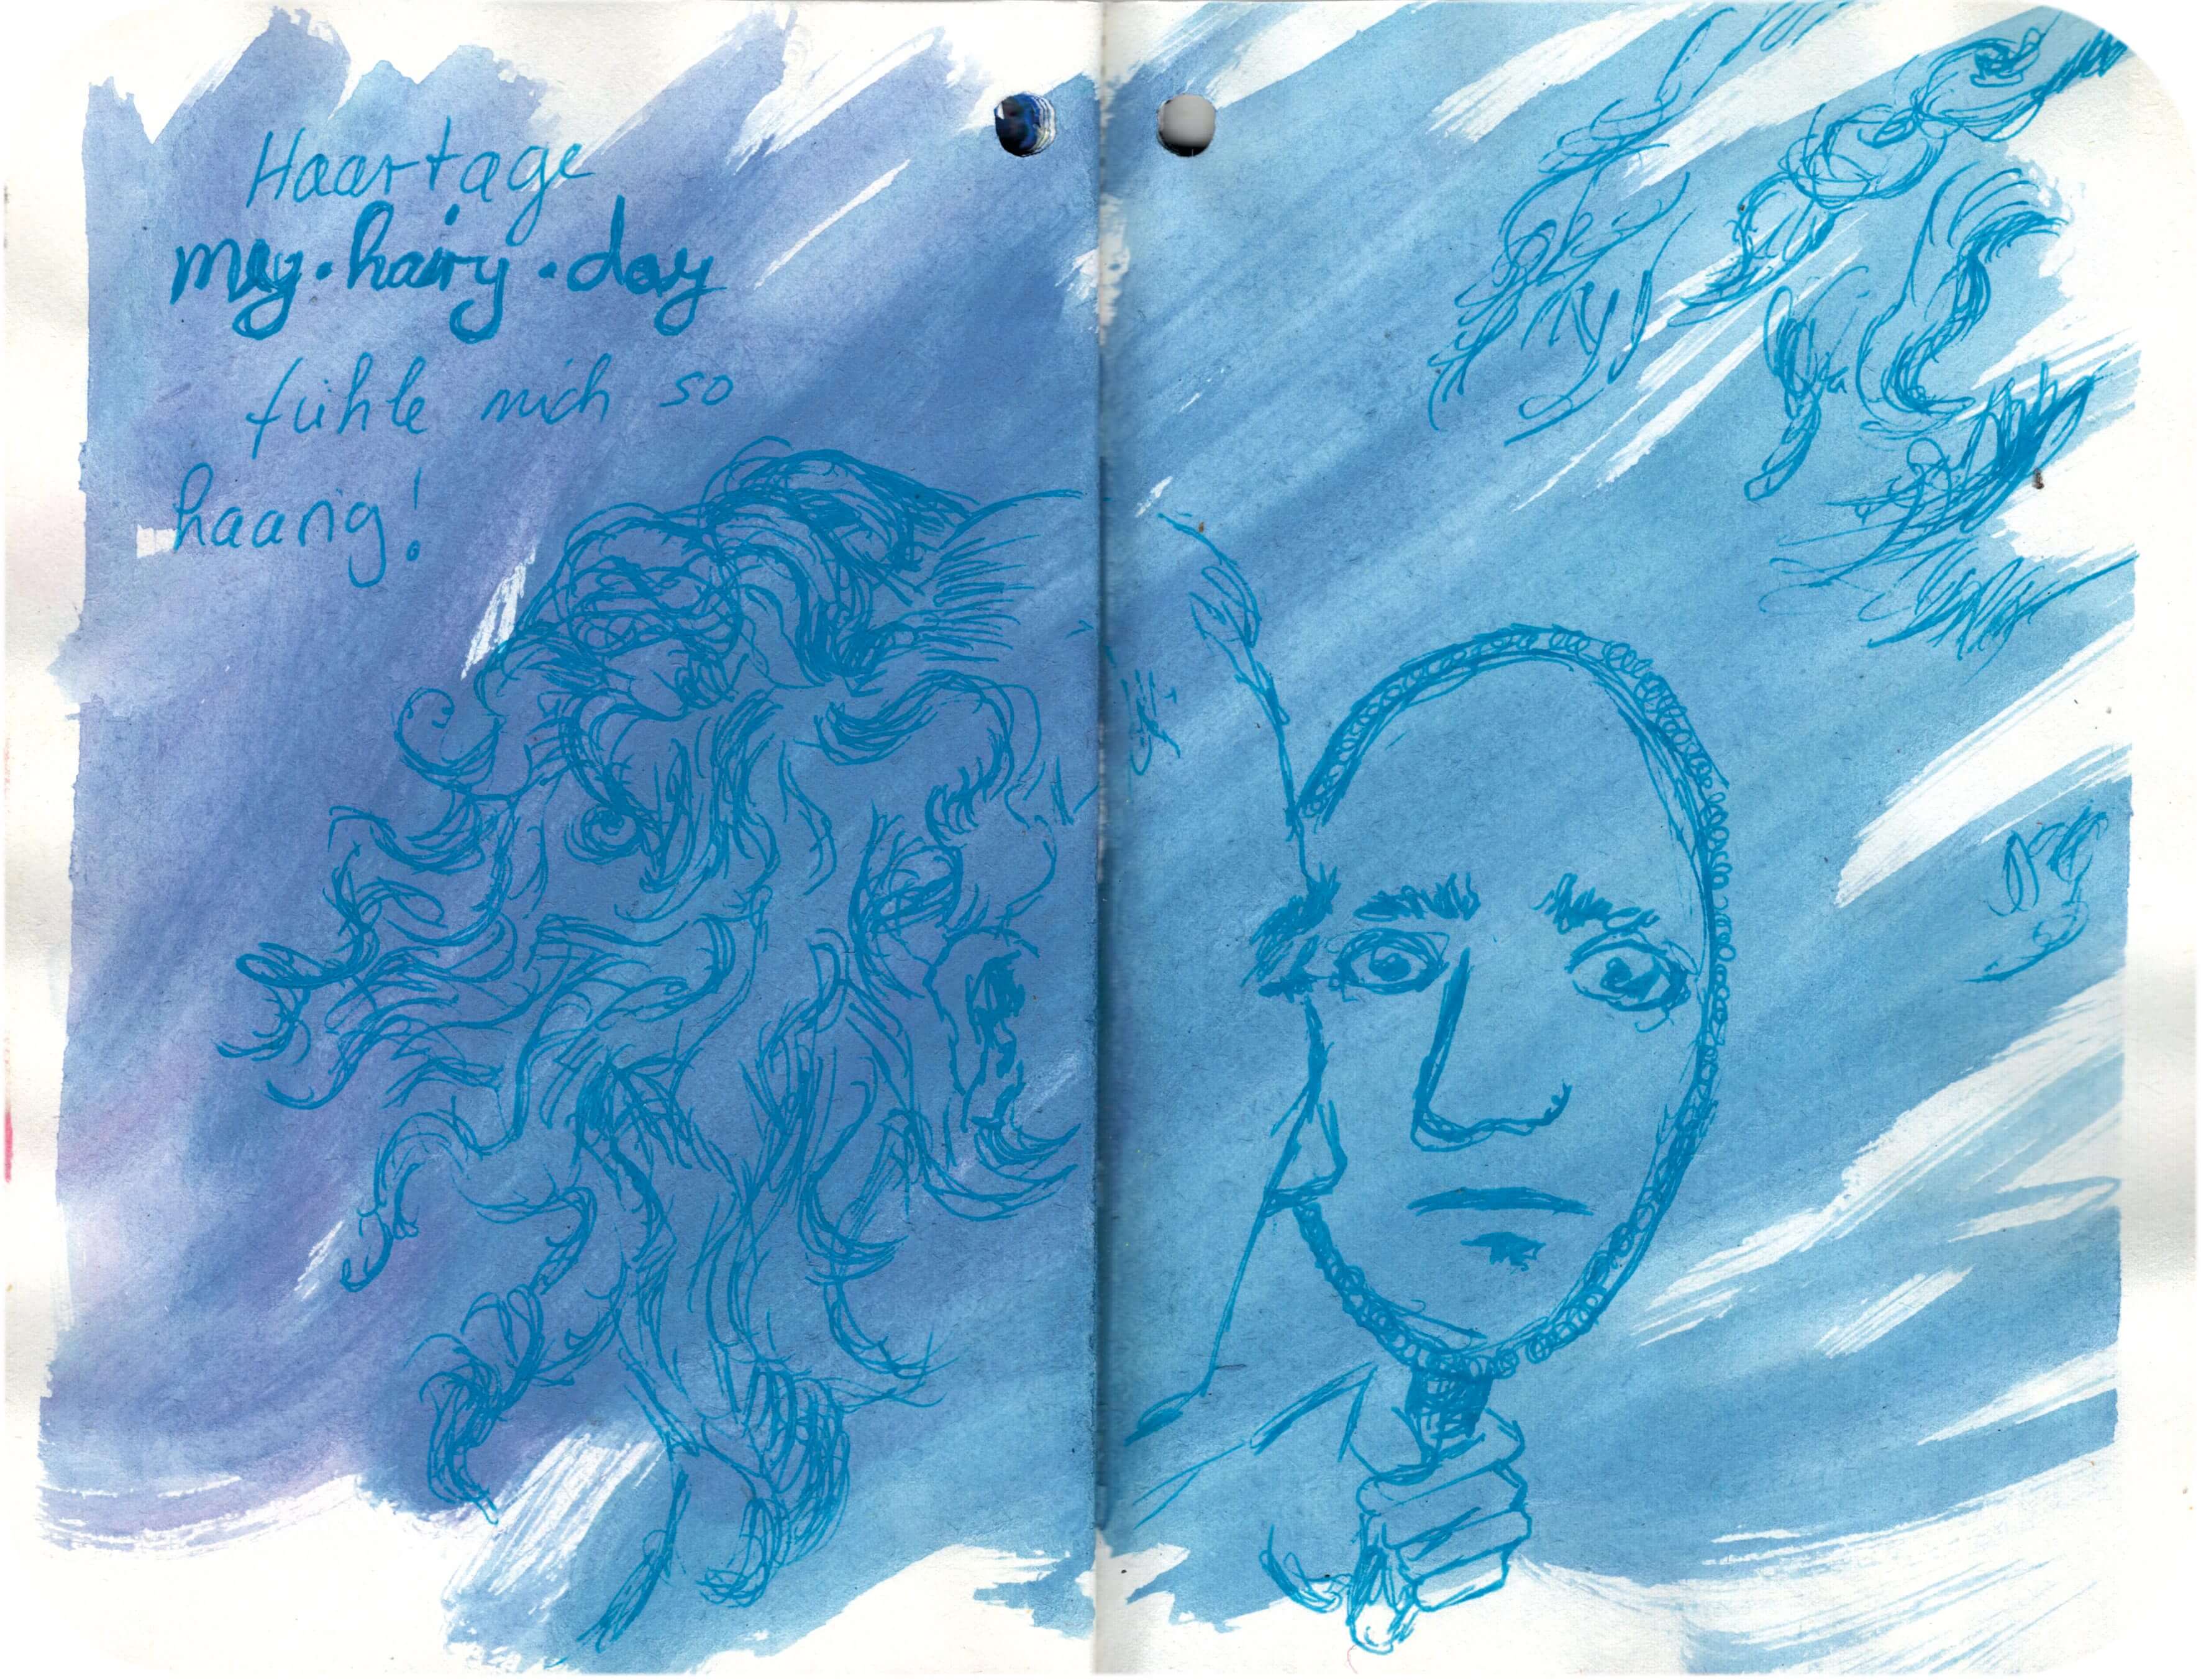 Haartage
my·hairy·day
fühle mich so
haarig!